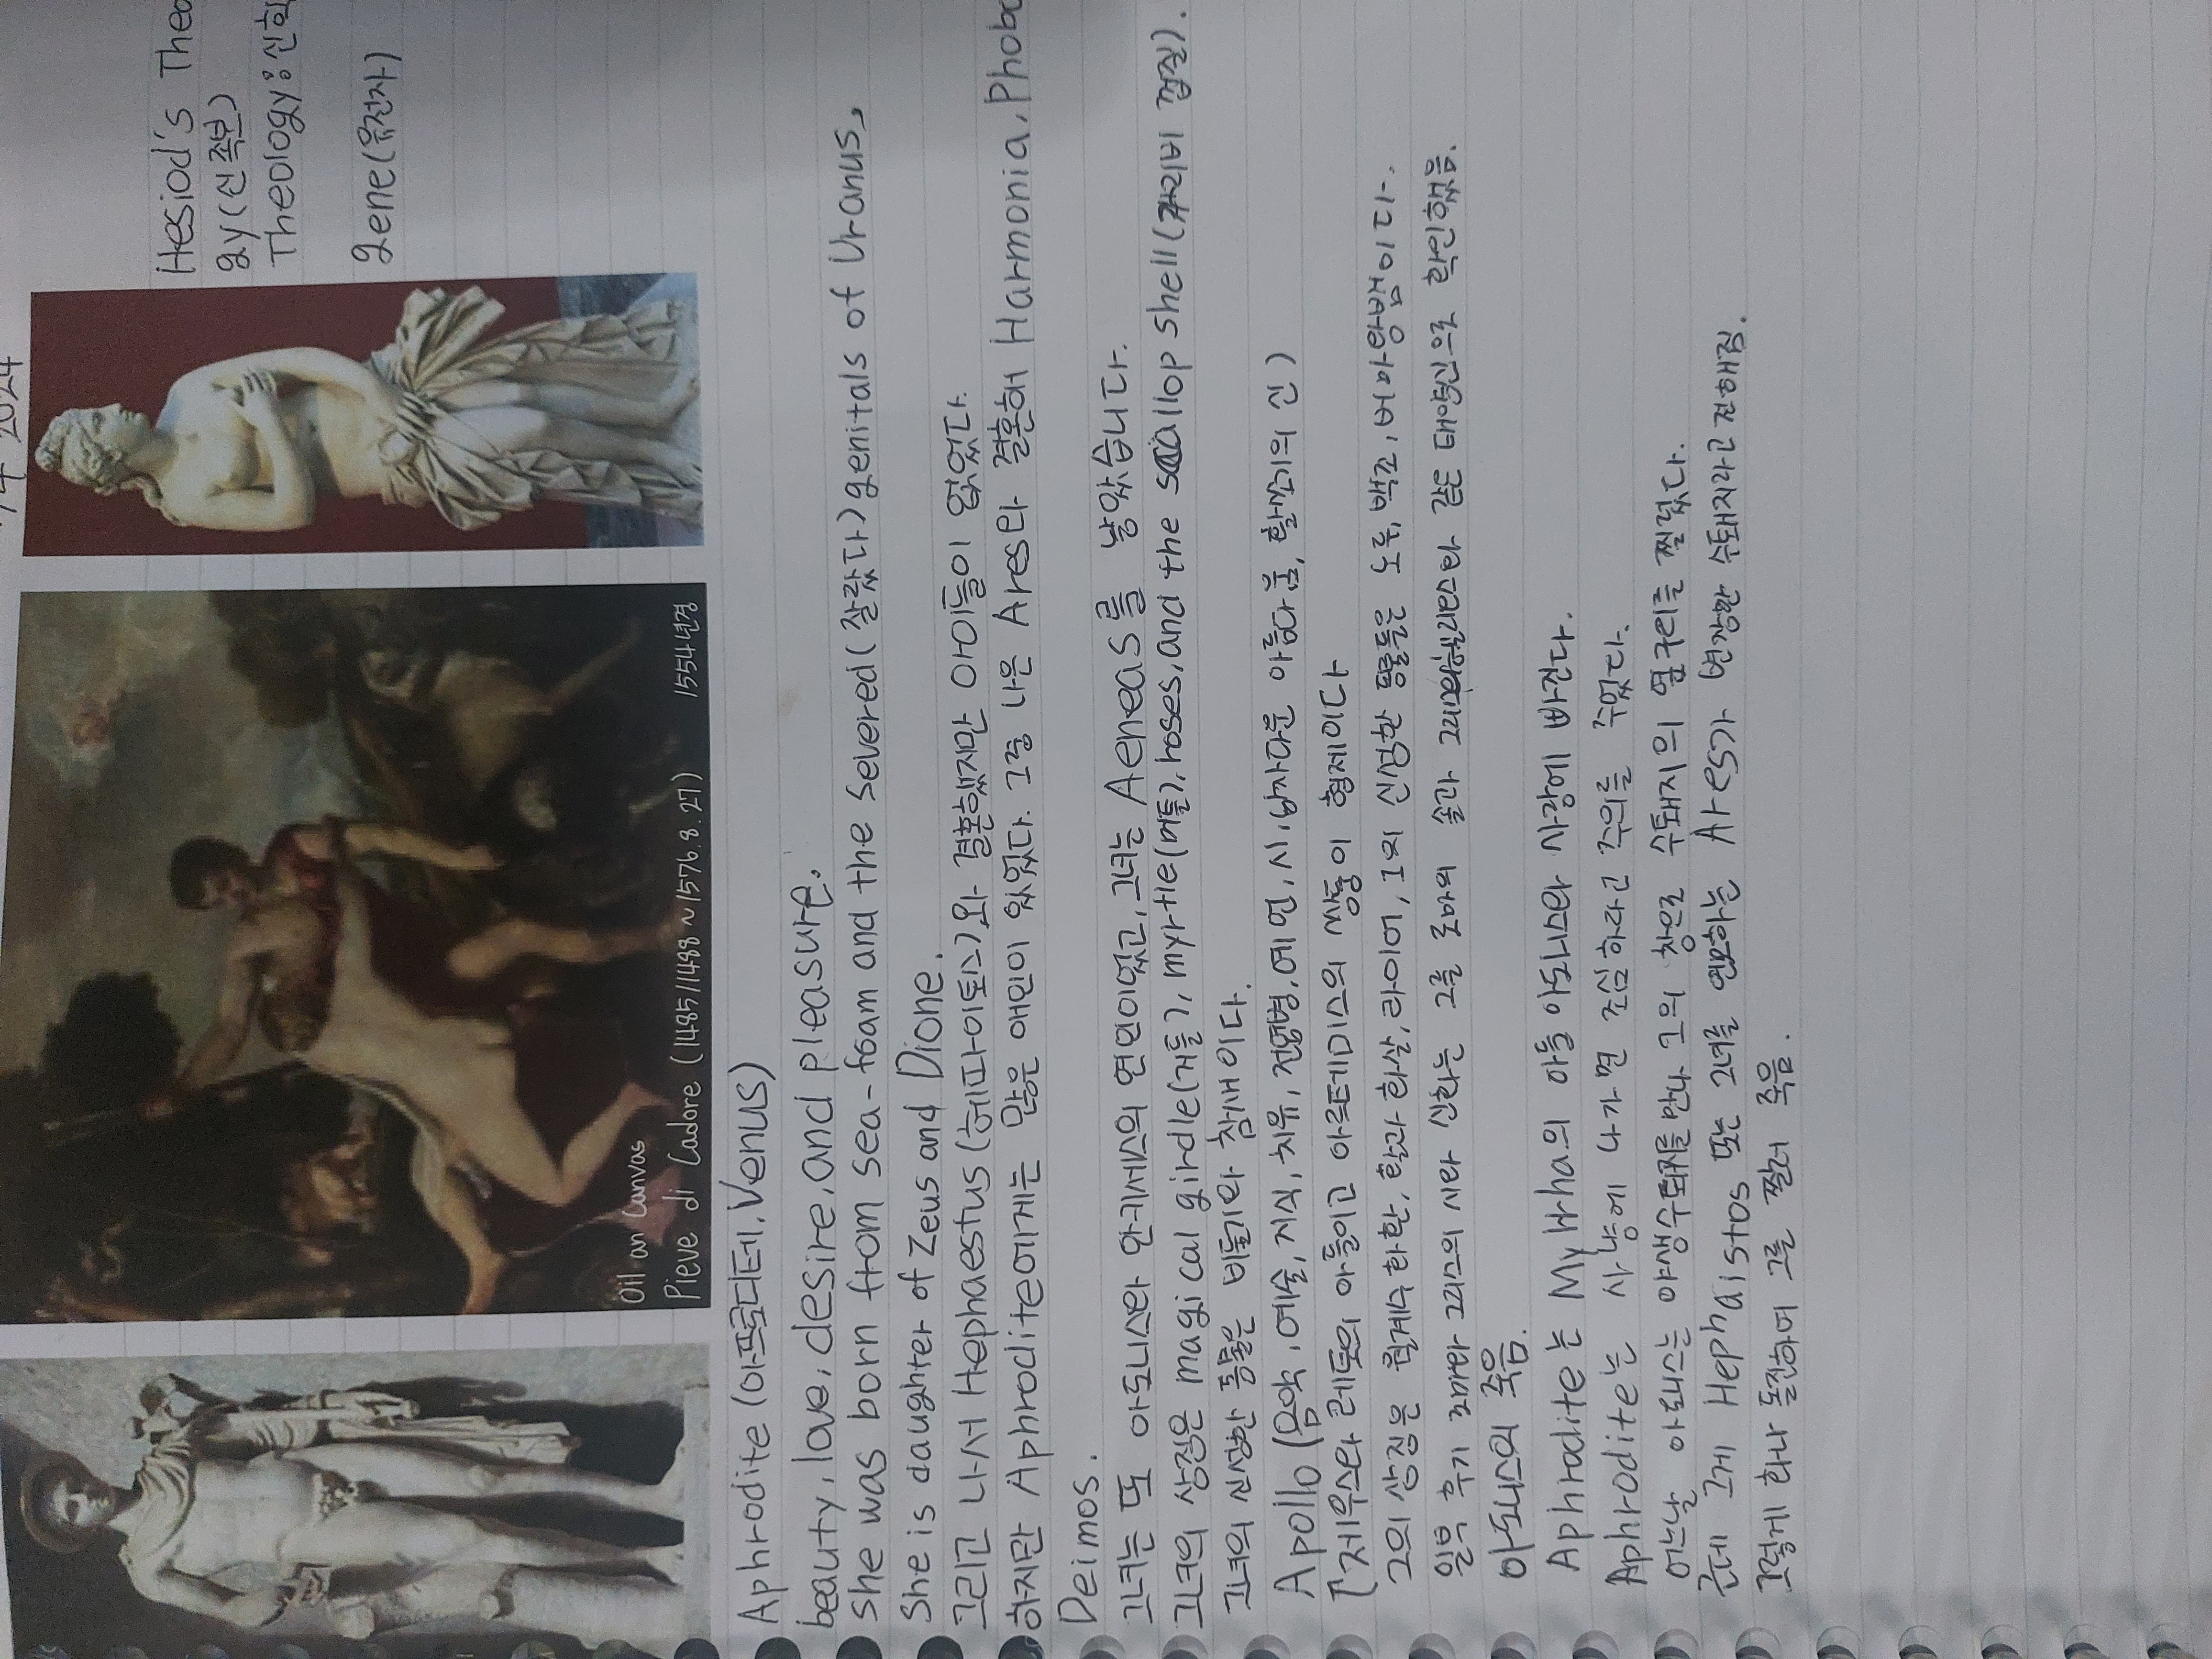 2024
Hesiod's Theo
gy(신 족보)
Theology:신학
gene(유전자)
Oil an Canvas
Pieve di Cadore (1485/1488~1576.8.27) 1554년경
Aphrodite (아프로디테, Venus)
beauty, love, desire, and pleasure.
She was born from sea-foam and the severed(잘랐다) genitals of Uranus,
She is daughter of Zeus and Dione.
그리고 나서 Hephaestus(헤파이토스)와 결혼했지만 아이들이 없었다.
하지만 Aphrodite에게는 많은 애인이 있었다. 그중 나은 Ares와 결혼해 Harmonia, Phobo
Deimos.
그녀는 또 아도니스와 안키세스의 연인이었고, 그녀는 Aeneas를 낳았습니다.
그녀의 상징은 magical girdle(거들), myrtle(머틀), roses, and the scallop shell(가리비 껍질).
그녀의 신성한 동물은 비둘기와 참새이다.
Apollo (음악, 예술, 지식, 치유, 전염병, 예언, 시, 남자다운 아름다움, 활쏘기의 신)
[제우스와 레토의 아들이고 아르테미스의 쌍둥이 형제이다
그의 상징은 월계수 화환, 활과 화살, 라이어, 그의 신성한 동물은 노루, 백조, 버마왕뱀이다.
일부 후기 로마와 그리스의 시와 신화는 그를 로마의 솔과 그리스의 헬리오스와 같은 태양신으로 확인했음.
아도니스의 죽음.
Aphrodite는 Myrrha의 아들 아도니스와 사랑에 빠진다.
Aphrodite는 사냥에 나가면 조심하라고 주의를 주었다.
어느날 아도니스는 야생수퇘지를 만나 그의 창으로 수퇘지의 옆구리를 찔렀다.
근데 그게 Hephaistos 또는 그녀를 연모하는 Ares가 변장한 수퇘지라고 전해짐.
그렇게 화나 돌진하여 그를 찔러 죽음.